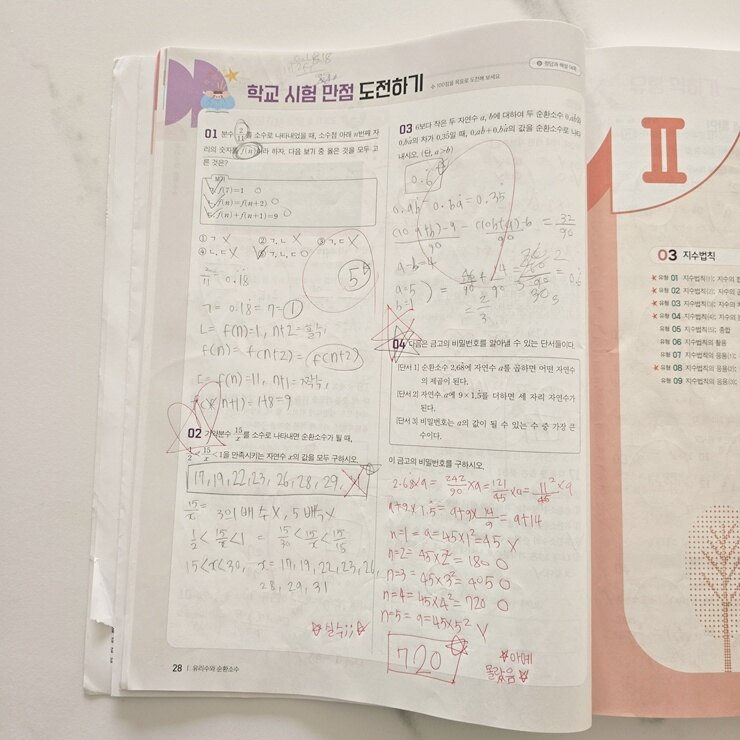 학교 시험 만점 도전하기
※ 100점을 목표로 도전해 보세요.
정답과 해설 14쪽
01 분수 2/11를 소수로 나타내었을 때, 소수점 아래 n번째 자
리의 숫자를 f(n)이라 하자. 다음 보기 중 옳은 것을 모두 고
른 것은?
보기
ㄱ. f(7)=1 O
ㄴ. f(n)=f(n+2) O
ㄷ. f(n)+f(n+1)=9 O
① ㄱ X ② ㄱ, ㄴ X ③ ㄱ, ㄷ X
④ ㄴ, ㄷ X ⑤ ㄱ, ㄴ, ㄷ O
⑤
2/11 = 0.18
ㄱ = 0.18 = 7 = 1
ㄴ = f(n)=1, n+2 = 홀수
f(n) = f(n+2) = f(n+2)
ㄷ = f(n)=11, n+1=짝수,
(n+1) = 1+8=9
02 기약분수 15/x를 소수로 나타내면 순환소수가 될 때,
1/2<15/x<1을 만족시키는 자연수 x의 값을 모두 구하시오.
17, 19, 22, 23, 26, 28, 29,
15/x = 3의 배수X, 5 배수X
1/2 < 15/x < 1 = 15/30 < 15/x < 15/15
15<x<30, x = 17, 19, 22, 23, 26,
28, 29, 31
☆실수;;☆
28 I. 유리수와 순환소수
03 6보다 작은 두 자연수 a, b에 대하여 두 순환소수 0.ab와
0.ba의 차가 0.35일 때, 0.ab+0.ba의 값을 순환소수로 나타
내시오. (단, a>b)
0.6
0.ab - 0.ba = 0.35
(10a+b)-a/90 - (10b+a)-b/90 = 32/90
a-b=4
a=5
b=1
04 다음은 금고의 비밀번호를 알아낼 수 있는 단서들이다.
[단서 1] 순환소수 2.68에 자연수 a를 곱하면 어떤 자연수
의 제곱이 된다.
[단서 2] 자연수 a에 9×1.5를 더하면 세 자리 자연수가
된다.
[단서 3] 비밀번호는 a의 값이 될 수 있는 수 중 가장 큰
수이다.
이 금고의 비밀번호를 구하시오.
2.68×a = 242/90×a = 121/45×a = 11²/45×a
a+9×1.5 = a+9×14/9 = a+14
n=1 = a=45×1²=45 X
n=2 = 45×2²=180 O
n=3 = 45×3²=405 O
n=4 = 45×4²=720 O
n=5 = a=45×5² V
720
☆아예
몰랐음☆
II
03 지수법칙
유형 01 지수법칙(1)
유형 02 지수법칙(2)
유형 03 지수법칙(3)
유형 04 지수법칙(4)
유형 05 지수법칙(5): 종합
유형 06 지수법칙의 활용
유형 07 지수법칙의 응용(1)
유형 08 지수법칙의 응용(2)
유형 09 지수법칙의 응용